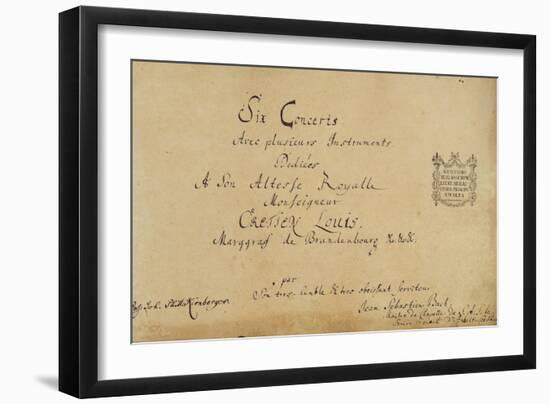 Six Concerts
Avec plusieurs Instruments
Dediées
A Son Altesse Royalle
Monseigneur
CRETIEN LOUIS.
Marggraf de Brandenbourg &c.&c.&c.
par
Son tres humble & tres obeissant serviteur
Jean Sebastien Bach
Maitre de Chapelle de S. A. S. le
Prince regnant d'Anhalt-Coethen
Joh. Phil. Kirnberger.